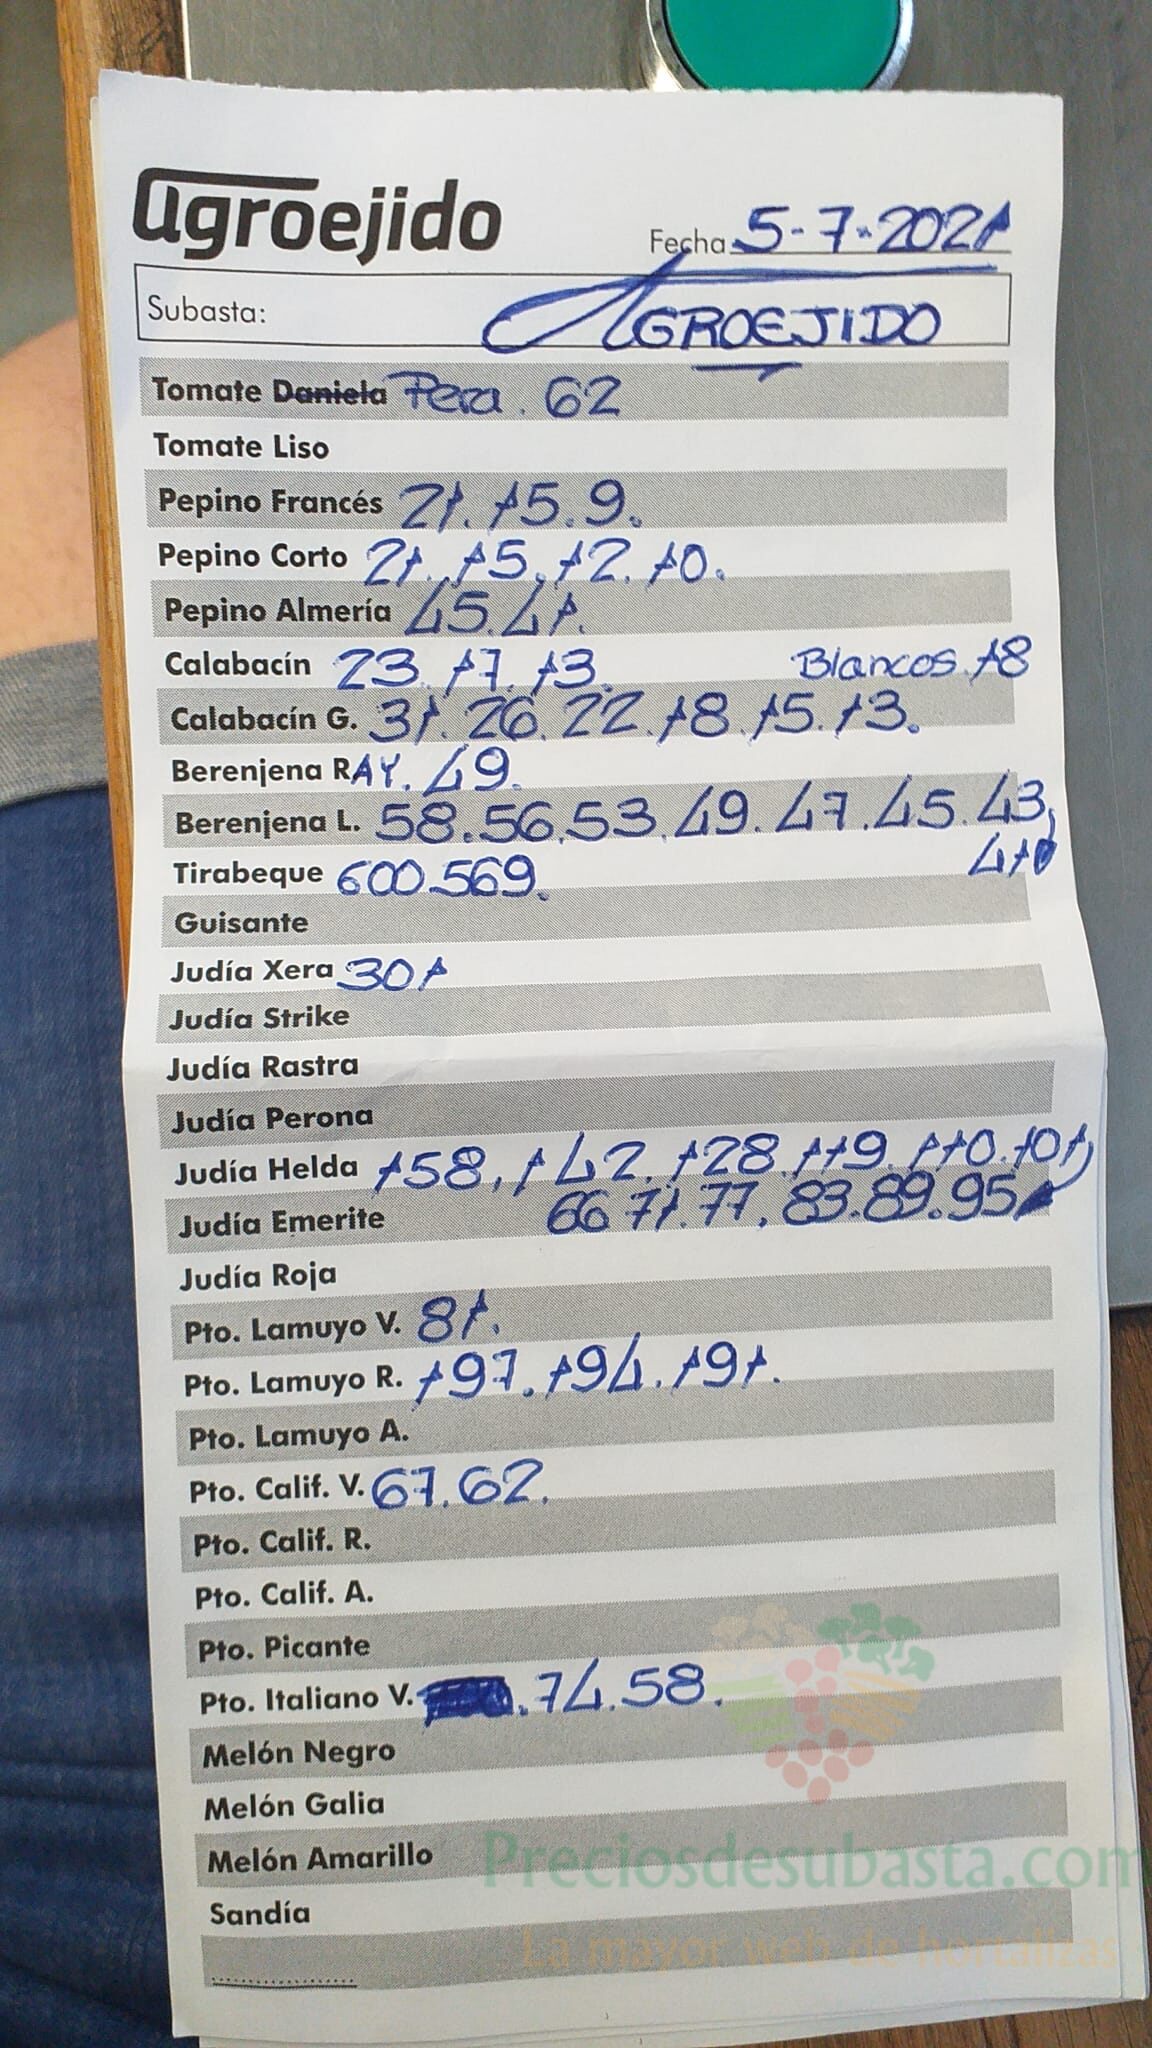 agroejido
Fecha 5-7-2021
Subasta: AGROEJIDO
Tomate Daniela Pera. 62
Tomate Liso
Pepino Francés 21. 15. 9.
Pepino Corto 21. 15. 12. 10.
Pepino Almería 45. 41.
Calabacín 23. 17. 13. Blancos. 18
Calabacín G. 31. 26. 22. 18. 15. 13.
Berenjena RAY. 49.
Berenjena L. 58. 56. 53. 49. 47. 45. 43,
Tirabeque 600. 569.
Guisante
Judía Xera 301
Judía Strike
Judía Rastra
Judía Perona
Judía Helda 158. 142. 128. 119. 110. 101,
Judía Emerite 66 71. 77. 83. 89. 95
Judía Roja
Pto. Lamuyo V. 81.
Pto. Lamuyo R. 197. 194. 191.
Pto. Lamuyo A.
Pto. Calif. V. 67. 62.
Pto. Calif. R.
Pto. Calif. A.
Pto. Picante
Pto. Italiano V. . 74. 58.
Melón Negro
Melón Galia
Melón Amarillo
Preciosdesubasta.com
Sandía
La mayor web de hortalizas